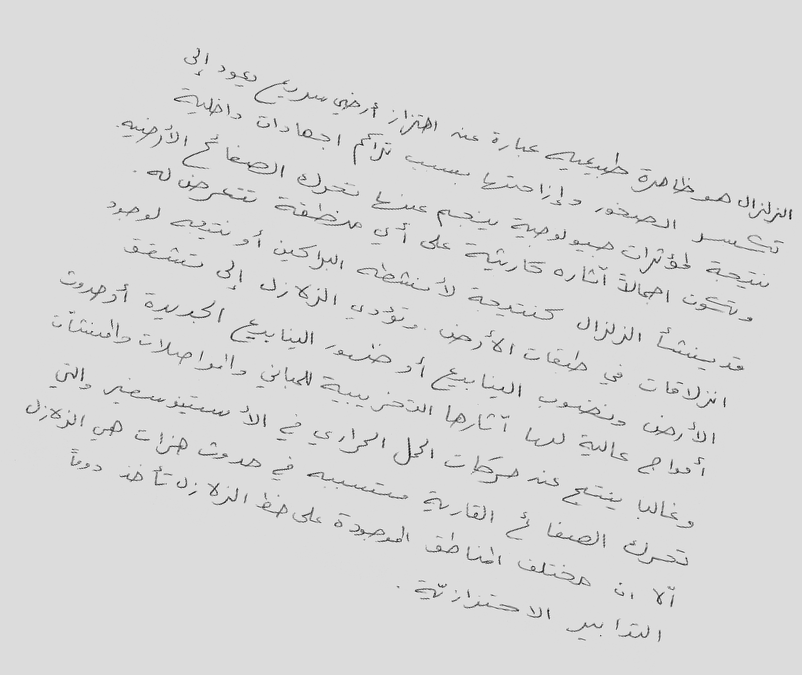 الزلزال هو ظاهرة طبيعيه عبارة عن اهتزاز أرضي سريع يعود إلى
تكسر الصخور وإزاحتها بسبب تراكم اجهادات داخلية
نتيجة لمؤثرات جيولوجية ينجم عنها تحرك الصفائح الأرضيه.
وتكون اجمالاً آثاره كارثية على أي منطقة تتعرض له.
قد ينشأ الزلزال كنتيجة لأنشطه البراكين أو نتيجه لوجود
انزلاقات في طبقات الأرض. وتؤدي الزلازل إلى تشقق
الأرض ونضوب الينابيع أو ظهور الينابيع الجديدة أو حدوث
أمواج عالية لها آثارها التخريبية للمباني والمواصلات والمنشآت
وغالبا ينتج عن حركات الحمل الحراري في الأستنوسفير والتي
تحرك الصفائح القارية متسببه في حدوث هزات هي الزلازل
ألا ان مختلف المناطق الموجودة على خط الزلازل تأخذ دوماً
التدابير الاحتزازيّة.